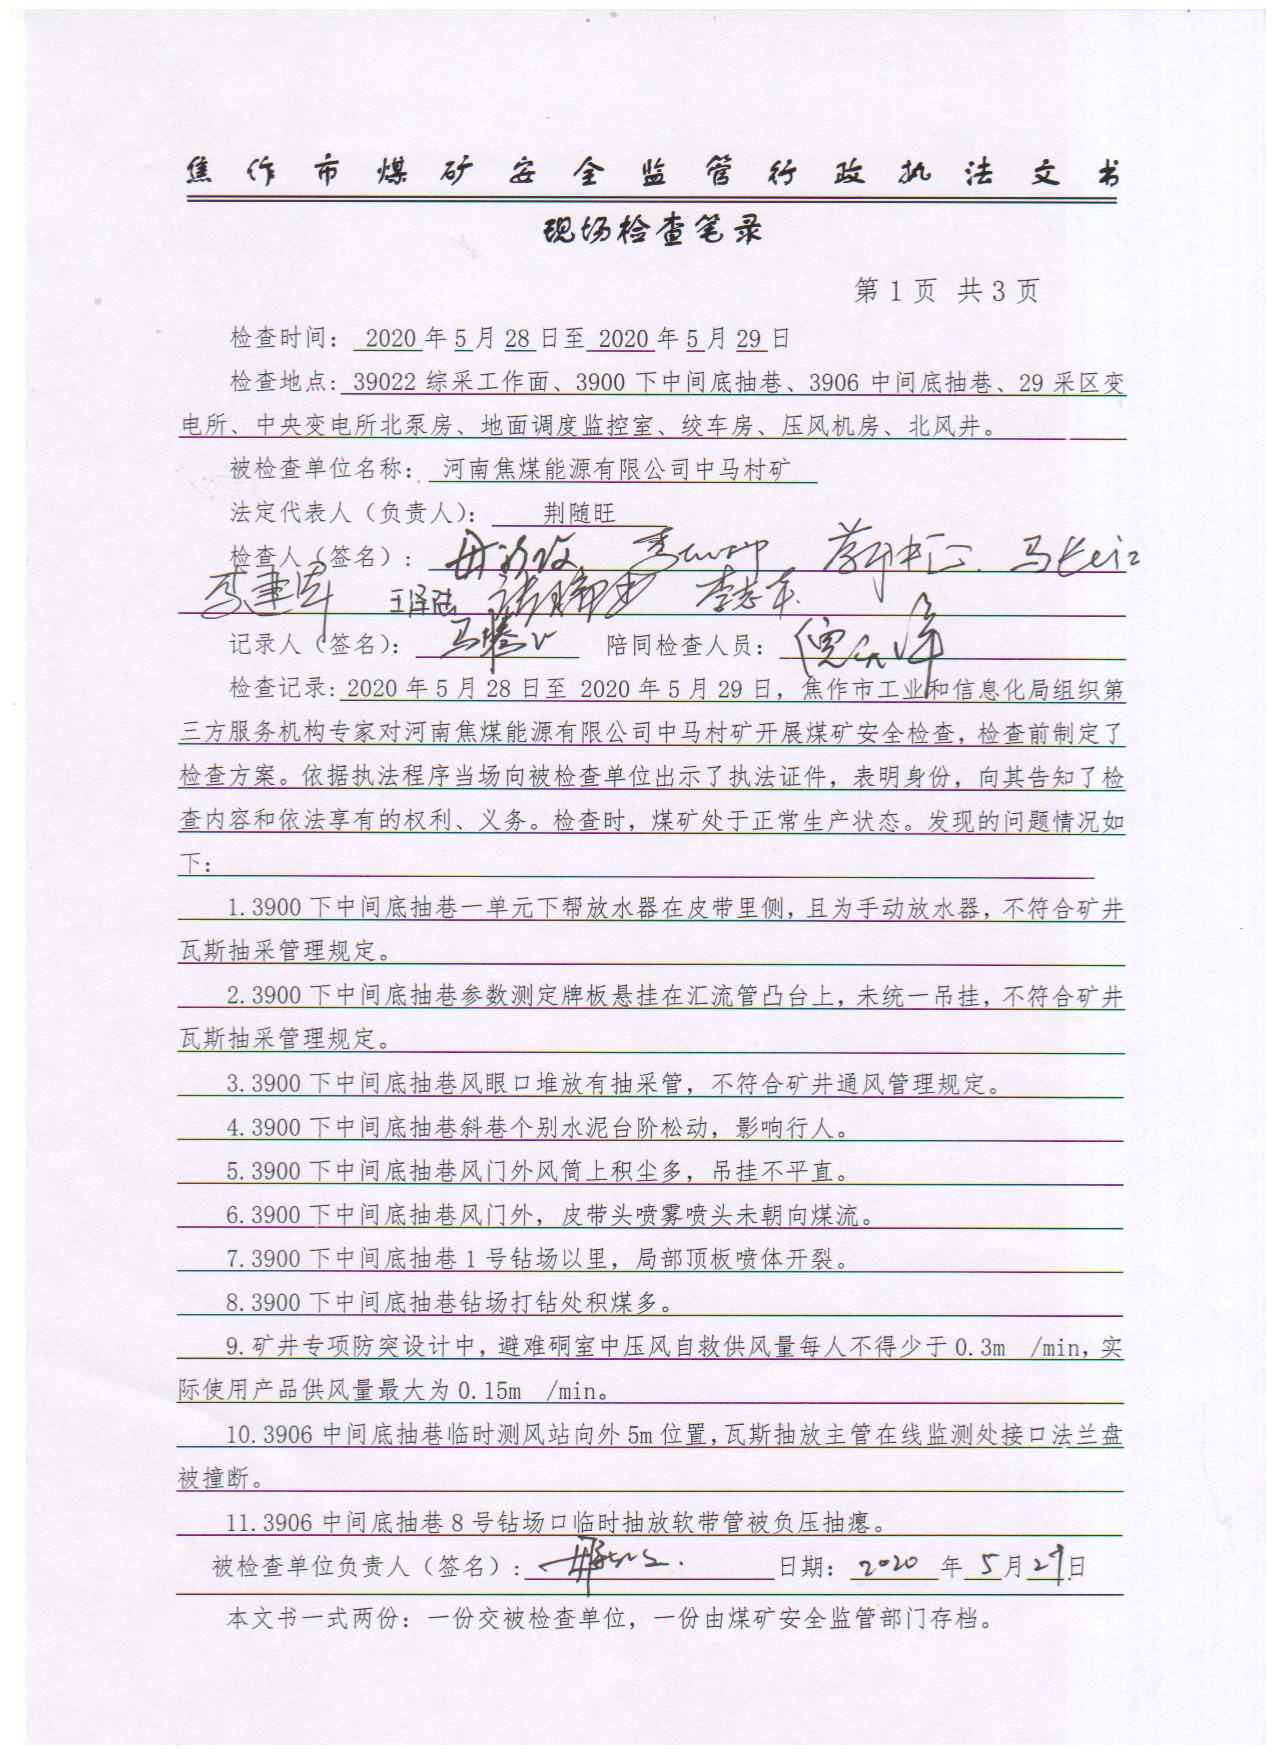 焦作市煤矿安全监管行政执法文书
现场检查笔录
第 1 页 共 3 页
检查时间： 2020 年 5 月 28 日至 2020 年 5 月 29 日
检查地点: 39022 综采工作面、3900 下中间底抽巷、3906 中间底抽巷、29 采区变
电所、中央变电所北泵房、地面调度监控室、绞车房、压风机房、北风井。
被检查单位名称： 河南焦煤能源有限公司中马村矿
法定代表人（负责人）： 荆随旺
检查人（签名）：
李志军
记录人（签名）： 陪同检查人员：
检查记录: 2020 年 5 月 28 日至 2020 年 5 月 29 日，焦作市工业和信息化局组织第
三方服务机构专家对河南焦煤能源有限公司中马村矿开展煤矿安全检查，检查前制定了
检查方案。依据执法程序当场向被检查单位出示了执法证件，表明身份，向其告知了检
查内容和依法享有的权利、义务。检查时，煤矿处于正常生产状态。发现的问题情况如
下：
1.3900 下中间底抽巷一单元下帮放水器在皮带里侧，且为手动放水器，不符合矿井
瓦斯抽采管理规定。
2.3900 下中间底抽巷参数测定牌板悬挂在汇流管凸台上，未统一吊挂，不符合矿井
瓦斯抽采管理规定。
3.3900 下中间底抽巷风眼口堆放有抽采管，不符合矿井通风管理规定。
4.3900 下中间底抽巷斜巷个别水泥台阶松动，影响行人。
5.3900 下中间底抽巷风门外风筒上积尘多，吊挂不平直。
6.3900 下中间底抽巷风门外，皮带头喷雾喷头未朝向煤流。
7.3900 下中间底抽巷 1 号钻场以里，局部顶板喷体开裂。
8.3900 下中间底抽巷钻场打钻处积煤多。
9.矿井专项防突设计中，避难硐室中压风自救供风量每人不得少于 0.3m /min，实
际使用产品供风量最大为 0.15m /min。
10.3906 中间底抽巷临时测风站向外 5m 位置，瓦斯抽放主管在线监测处接口法兰盘
被撞断。
11.3906 中间底抽巷 8 号钻场口临时抽放软带管被负压抽瘪。
被检查单位负责人（签名）： 日期： 2020 年 5 月 29 日
本文书一式两份：一份交被检查单位，一份由煤矿安全监管部门存档。